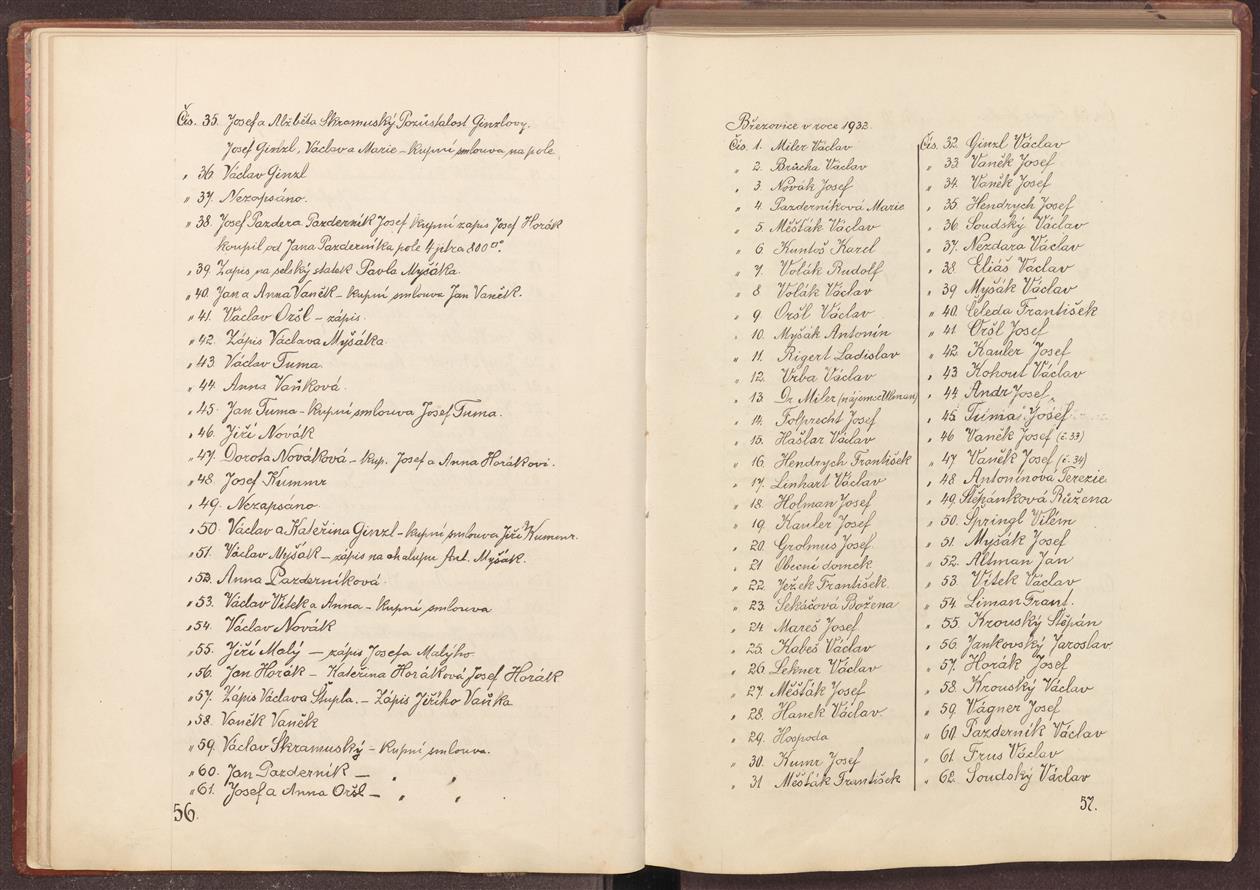 Čís. 35. Josef a Alžběta Skramuský Pozůstalost Ginzlovy.
Josef Ginzl, Václav a Marie – Kupní smlouva na pole
„ 36 Václav Ginzl
„ 37. Nezapsáno.
„ 38. Josef Pazdera Pazderník Josef kupní zápis Josef Horák
koupil od Jana Pazderníka pole 4 jitra 800□°.
„ 39. Zápis na selský statek Pavla Myšáka.
„ 40. Jan a Anna Vaněk – Kupní smlouva Jan Vaněk.
„ 41. Václav Oršl – zápis.
„ 42. Zápis Václava Myšáka.
„ 43. Václav Tuma.
„ 44. Anna Vaňková.
„ 45. Jan Tuma – Kupní smlouva Josef Tuma.
„ 46. Jiří Novák
„ 47. Dorota Nováková – kup. Josef a Anna Horákovi.
„ 48. Josef Kummr
„ 49. Nezapsáno
„ 50. Václav a Kateřina Ginzl – kupní smlouva Jiří Kummr.
„ 51. Václav Myšák – zápis na chalupu Ant. Myšák.
„ 52. Anna Pazderníková.
„ 53. Václav Vítek a Anna – Kupní smlouva
„ 54. Václav Novák
„ 55. Jiří Malý – zápis Josefa Malýho
„ 56. Jan Horák – Kateřina Horáková Josef Horák
„ 57. Zápis Václava Štupla. – Zápis Jiřího Vaňka
„ 58. Vaněk Vaněk
„ 59. Václav Skramuský – Kupní smlouva.
„ 60. Jan Pazderník – „ „
„ 61. Josef a Anna Oršl – „ „
56.
Březovice v roce 1932.
Čís. 1. Miler Václav
„ 2. Brůcha Václav
„ 3. Novák Josef
„ 4. Pazderníková Marie
„ 5. Měšťák Václav
„ 6. Kuntoš Karel
„ 7. Volák Rudolf
„ 8 Volák Václav
„ 9. Oršl Václav
„ 10. Myšák Antonín
„ 11. Rigert Ladislav
„ 12. Vrba Václav
„ 13. Dr Miler (nájemce Ulman)
„ 14. Folprecht Josef
„ 15. Hašlar Václav
„ 16. Hendrych František
„ 17. Linhart Václav
„ 18. Holman Josef
„ 19. Kauler Josef
„ 20. Grolmus Josef.
„ 21 Obecní domek
„ 22. Ježek František.
„ 23. Sekáčová Božena
„ 24 Mareš Josef
„ 25. Kabeš Václav
„ 26. Lekner Václav
„ 27. Měšťák Josef
„ 28. Hanek Václav.
„ 29. Hospoda
„ 30. Kumr Josef
„ 31 Měšťák František
Čís. 32. Ginzl Václav
„ 33. Vaněk Josef
„ 34. Vaněk Josef
„ 35 Hendrych Josef
„ 36 Soudský Václav
„ 37. Nezdara Václav
„ 38. Eliáš Václav
„ 39 Myšák Václav
„ 40. Čeleda František
„ 41 Oršl Josef
„ 42. Kauler Josef
„ 43 Kohout Václav
„ 44 Andr Josef
„ 45 Tůma Josef
„ 46 Vaněk Josef (č. 33)
„ 47 Vaněk Josef (č. 34)
„ 48 Antonínová Terezie
„ 49. Štěpánková Růžena
„ 50. Špringl Vilém
„ 51 Myšák Josef
„ 52. Altman Jan
„ 53 Vítek Václav
„ 54. Liman Frant.
„ 55. Krouský Štěpán
„ 56. Jankovský Jaroslav
„ 57. Horák Josef
„ 58 Krouský Václav
„ 59. Vágner Josef
„ 60 Pazderník Václav
„ 61. Frus Václav
„ 62. Soudský Václav
57.